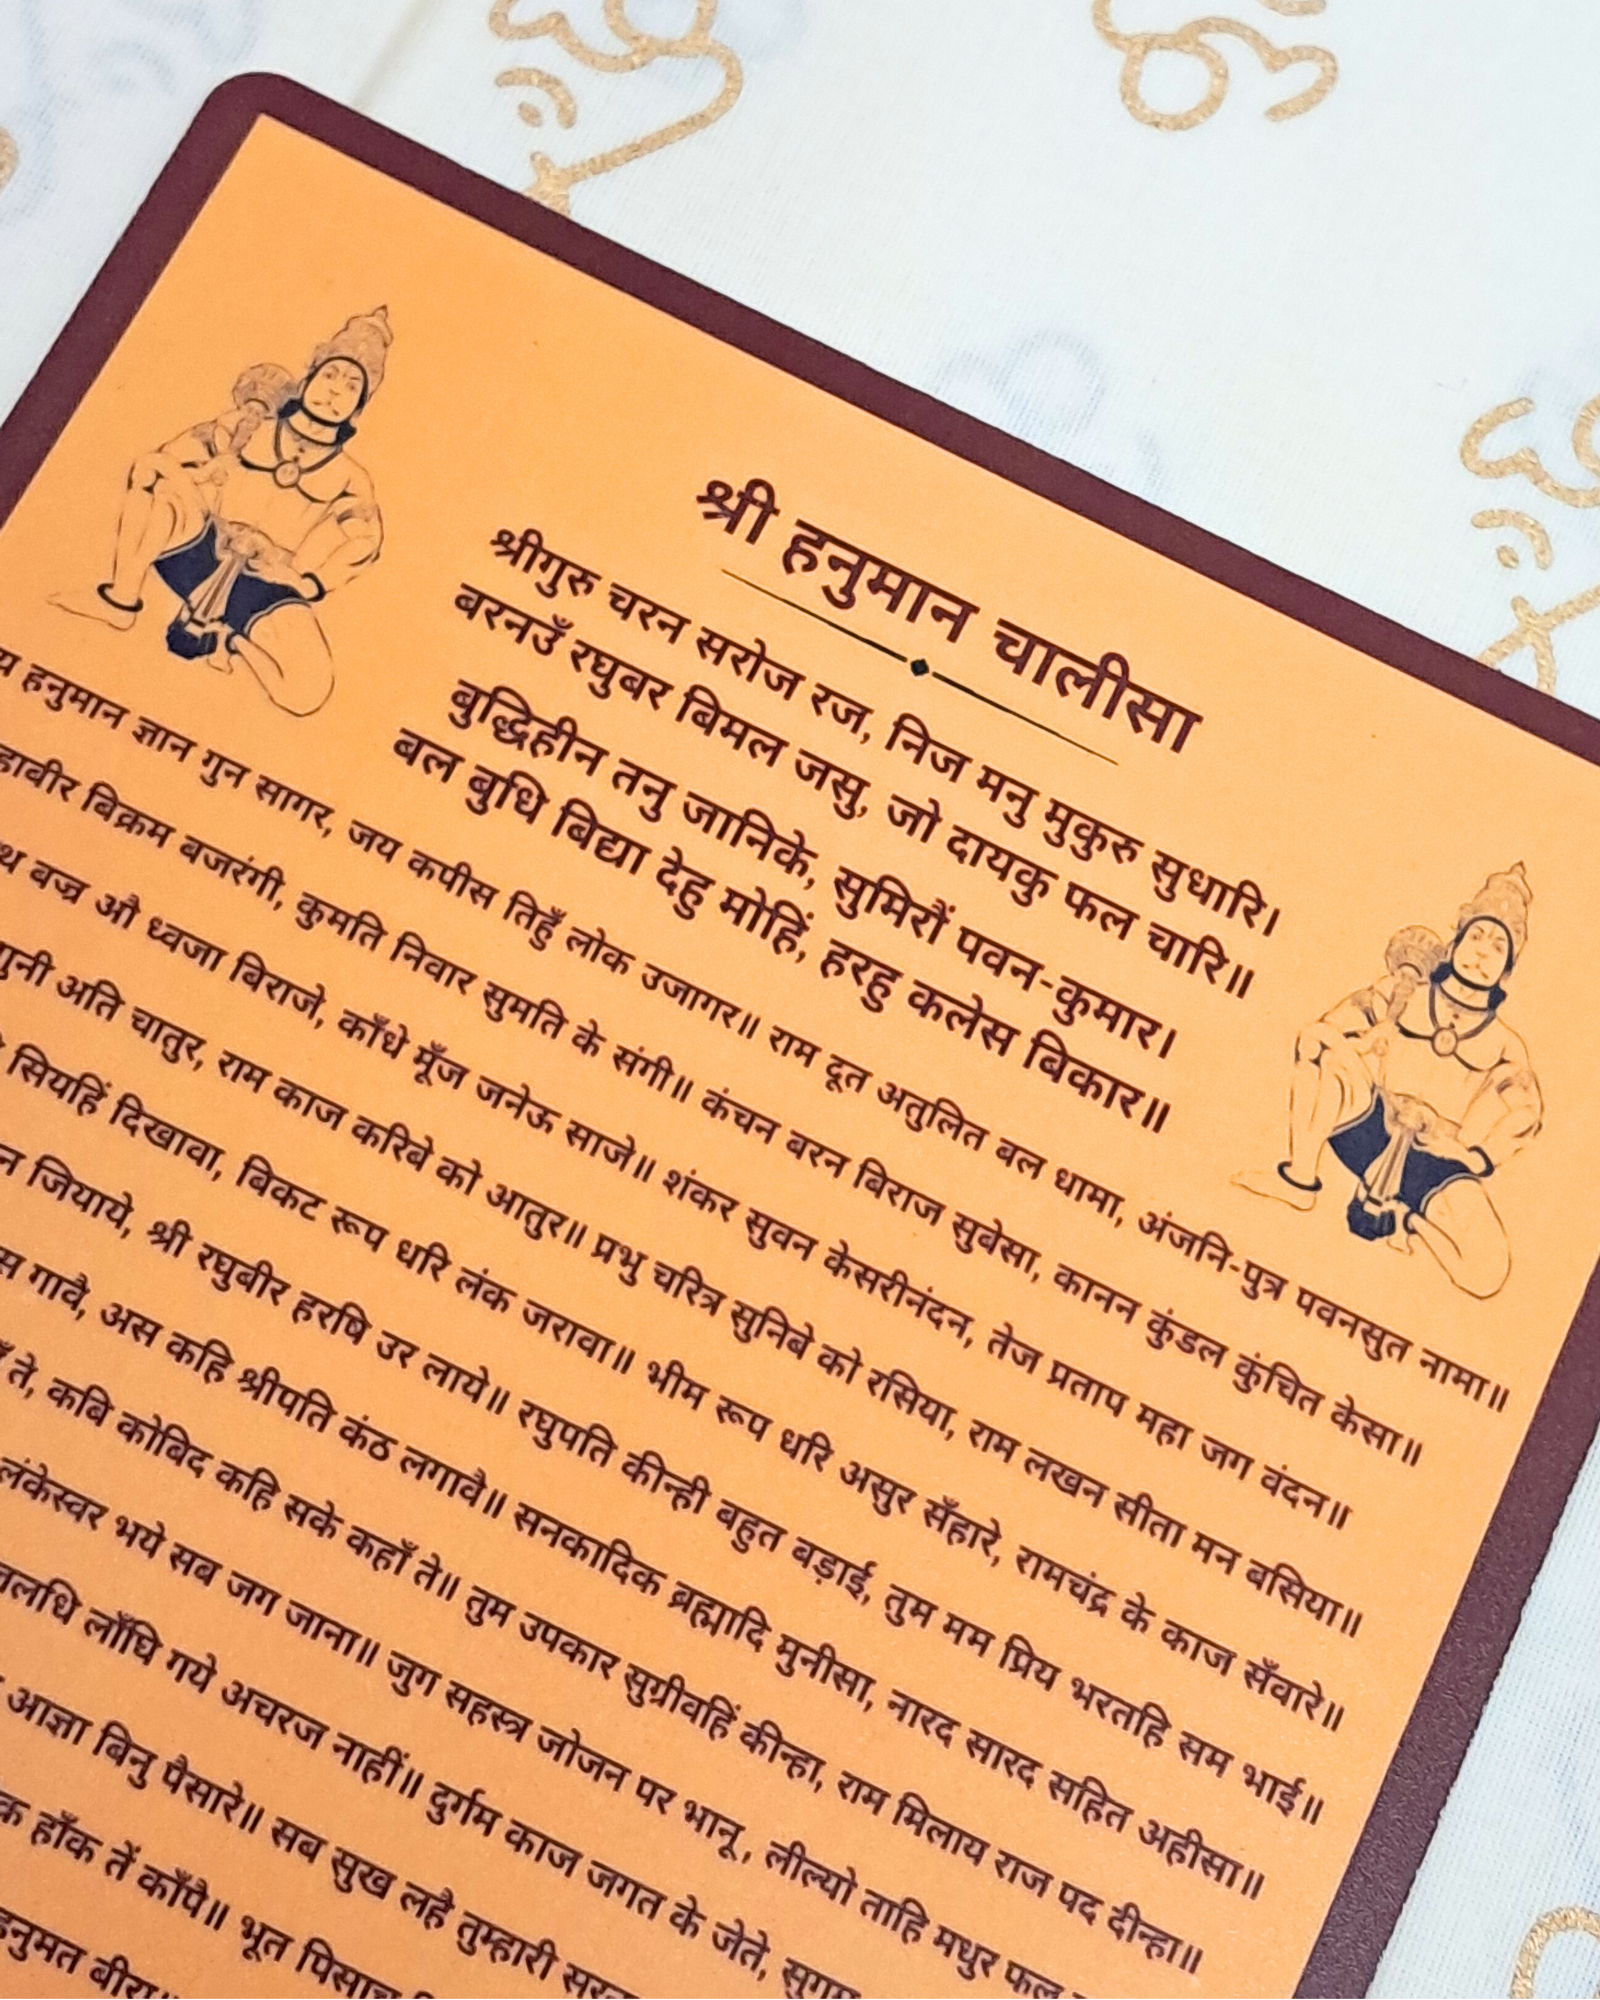 श्री हनुमान चालीसा
श्रीगुरु चरन सरोज रज, निज मनु मुकुरु सुधारि।
बरनउँ रघुबर बिमल जसु, जो दायकु फल चारि॥
बुद्धिहीन तनु जानिके, सुमिरौं पवन-कुमार।
बल बुधि बिद्या देहु मोहिं, हरहु कलेस बिकार॥
हनुमान ज्ञान गुन सागर, जय कपीस तिहुँ लोक उजागर॥ राम दूत अतुलित बल धामा, अंजनि-पुत्र पवनसुत नामा॥
बिक्रम बजरंगी, कुमति निवार सुमति के संगी॥ कंचन बरन बिराज सुबेसा, कानन कुंडल कुंचित केसा॥
वज्र औ ध्वजा बिराजे, काँधे मूँज जनेऊ साजे॥ शंकर सुवन केसरीनंदन, तेज प्रताप महा जग वंदन॥
गुनी अति चातुर, राम काज करिबे को आतुर॥ प्रभु चरित्र सुनिबे को रसिया, राम लखन सीता मन बसिया॥
सियहिं दिखावा, बिकट रूप धरि लंक जरावा॥ भीम रूप धरि असुर सँहारे, रामचंद्र के काज सँवारे॥
जियाये, श्री रघुबीर हरषि उर लाये॥ रघुपति कीन्ही बहुत बड़ाई, तुम मम प्रिय भरतहि सम भाई॥
गावै, अस कहि श्रीपति कंठ लगावै॥ सनकादिक ब्रह्मादि मुनीसा, नारद सारद सहित अहीसा॥
ते, कबि कोबिद कहि सके कहाँ ते॥ तुम उपकार सुग्रीवहिं कीन्हा, राम मिलाय राज पद दीन्हा॥
लंकेस्वर भये सब जग जाना॥ जुग सहस्त्र जोजन पर भानू, लील्यो ताहि मधुर फल
लाँघि गये अचरज नाहीं॥ दुर्गम काज जगत के जेते, सुगम
आज्ञा बिनु पैसारे॥ सब सुख लहै तुम्हारी
हाँक तें काँपै॥ भूत पिसाच
हनुमत बीरा॥